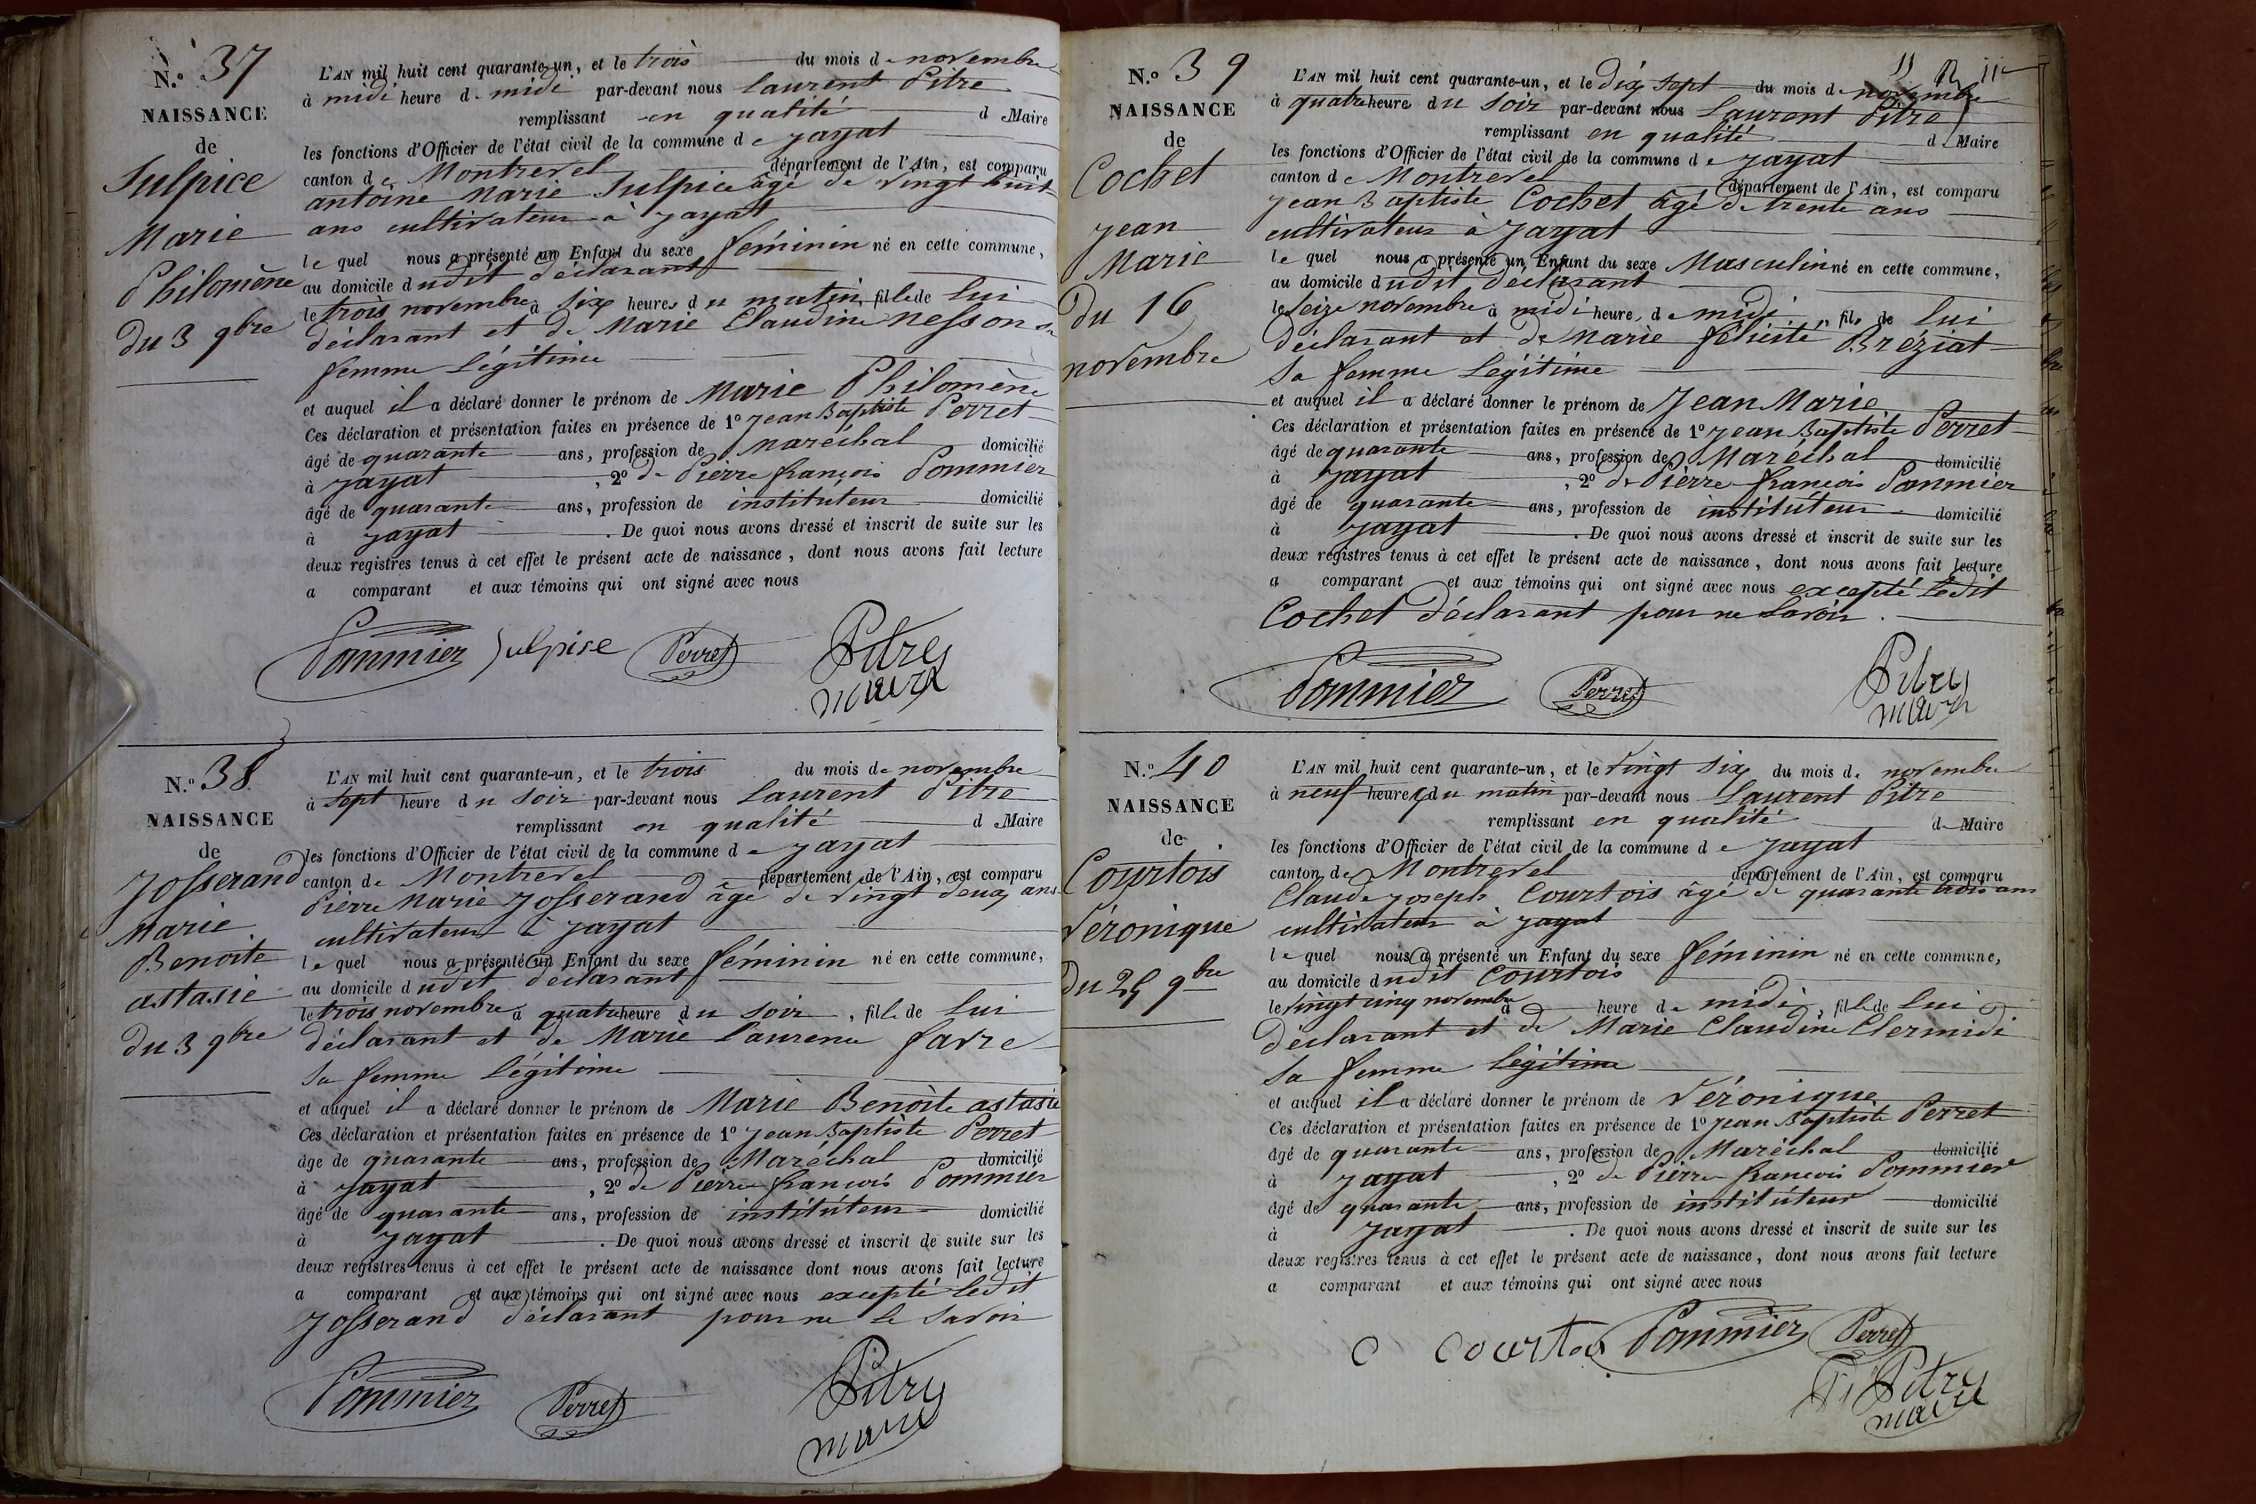 N.º 37
NAISSANCE
de
Sulpice
Marie
Philomène
du 3 9bre
L'AN mil huit cent quarante-un, et le trois du mois de novembre
à midi heure de midi par-devant nous Laurent Pitre
remplissant en qualité de Maire
les fonctions d'Officier de l'état civil de la commune de Jayat
canton de Montrevel département de l'Ain, est comparu
antoine Marie Sulpice âgé de vingt huit
ans cultivateur à Jayat
le quel nous a présenté un Enfant du sexe féminin né en cette commune,
au domicile dudit déclarant
le trois novembre à six heures du matin, fille de lui
déclarant et de Marie Claudine Nesson sa
femme légitime
et auquel il a déclaré donner le prénom de Marie Philomène
Ces déclaration et présentation faites en présence de 1º Jean Baptiste Perret
âgé de quarante ans, profession de Maréchal domicilié
à Jayat , 2º de Pierre françois Pommier
âgé de quarante ans, profession de instituteur domicilié
à Jayat . De quoi nous avons dressé et inscrit de suite sur les
deux registres tenus à cet effet le présent acte de naissance, dont nous avons fait lecture
a comparant et aux témoins qui ont signé avec nous
Pommier Sulpise Perret Pitre
maire
N.º 38
NAISSANCE
de
Josserand
Marie
Benoite
astasie
du 3 9bre
L'AN mil huit cent quarante-un, et le trois du mois de novembre
à sept heure du soir par-devant nous Laurent Pitre
remplissant en qualité de Maire
les fonctions d'Officier de l'état civil de la commune de Jayat
canton de Montrevel département de l'Ain, est comparu
Pierre Marie Josserand âgé de vingt deux ans
cultivateur à Jayat
le quel nous a présenté un Enfant du sexe féminin né en cette commune,
au domicile dudit déclarant
le trois novembre à quatre heure du soir, fille de lui
déclarant et de Marie Laurence favre
sa femme légitime
et auquel il a déclaré donner le prénom de Marie Benoîte astasie
Ces déclaration et présentation faites en présence de 1º Jean Baptiste Perret
âge de quarante ans, profession de Maréchal domicilié
à Jayat , 2º de Pierre françois Pommier
âgé de quarante ans, profession de instituteur domicilié
à Jayat . De quoi nous avons dressé et inscrit de suite sur les
deux registres tenus à cet effet le présent acte de naissance dont nous avons fait lecture
a comparant et aux témoins qui ont signé avec nous excepté ledit
Josserand déclarant pour ne le savoir
Pommier Perret Pitre
maire
N.º 39
NAISSANCE
de
Cochet
Jean
Marie
du 16
novembre
L'AN mil huit cent quarante-un, et le dix sept du mois de novembre
à quatre heure du soir par-devant nous Laurent Pitre
remplissant en qualité de Maire
les fonctions d'Officier de l'état civil de la commune de Jayat
canton de Montrevel département de l'Ain, est comparu
Jean Baptiste Cochet âgé de trente ans
cultivateur à Jayat
le quel nous a présenté un Enfant du sexe Masculin né en cette commune,
au domicile dudit déclarant
le seize novembre à midi heure, de midi, fils de lui
déclarant et de Marie félicité Bréziat
sa femme légitime
et auquel il a déclaré donner le prénom de Jean Marie
Ces déclaration et présentation faites en présence de 1º Jean Baptiste Perret
âgé de quarante ans, profession de Maréchal domicilié
à Jayat , 2º de Pierre françois Pommier
âgé de quarante ans, profession de instituteur domicilié
à Jayat . De quoi nous avons dressé et inscrit de suite sur les
deux registres tenus à cet effet le présent acte de naissance, dont nous avons fait lecture
a comparant et aux témoins qui ont signé avec nous excepté ledit
Cochet déclarant pour ne savoir.
Pommier Perret Pitre
maire
N.º 40
NAISSANCE
de
Courtois
Véronique
du 25 9bre
L'AN mil huit cent quarante-un, et le vingt six du mois de novembre
à neuf heures du matin par-devant nous Laurent Pitre
remplissant en qualité de Maire
les fonctions d'Officier de l'état civil de la commune de Jayat
canton de Montrevel département de l'Ain, est comparu
Claude Joseph Courtois âgé de quarante trois ans
cultivateur à Jayat
le quel nous a présenté un Enfant du sexe féminin né en cette commune,
au domicile dudit Courtois
le vingt cinq novembre à heure de midi, fille de lui
déclarant et de Marie Claudine Clermidi
sa femme légitime
et auquel il a déclaré donner le prénom de Véronique
Ces déclaration et présentation faites en présence de 1º Jean Baptiste Perret
âgé de quarante ans, profession de Maréchal domicilié
à Jayat , 2º de Pierre françois Pommier
âgé de quarante ans, profession de instituteur domicilié
à Jayat . De quoi nous avons dressé et inscrit de suite sur les
deux registres tenus à cet effet le présent acte de naissance, dont nous avons fait lecture
a comparant et aux témoins qui ont signé avec nous
C Courtois Pommier Perret
Pitre
maire